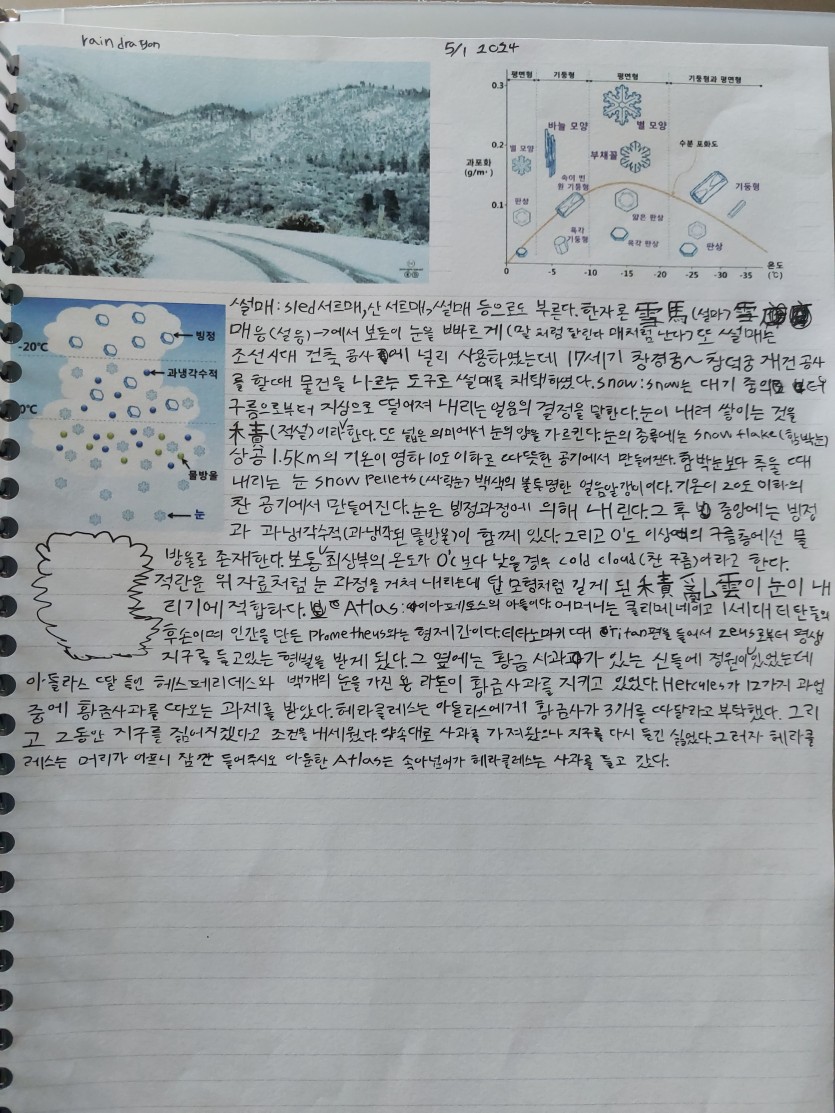 rain dragon
5/1 2024
평면형 기둥형 평면형 기둥형과 평면형
0.3
바늘 모양 별 모양
0.2
별 모양 부채꼴 수분 포화도
과포화
(g/m³)
속이 빈
원 기둥형 기둥형
0.1
판상 얇은 판상
육각
기둥형 육각 판상 판상
0 -5 -10 -15 -20 -25 -30 -35 온도
(℃)
빙정
-20℃
과냉각수적
0℃
물방울
눈
썰매: sled서르매,산 서트매,썰매 등으로도 부른다.한자론 雪馬(설마) 雪
매응(설응)→에서 보듯이 눈을 빠르게(말 처럼 달린다 매처럼 난다) 또 썰매는
조선시대 건축 공사에 널리 사용하였는데 17세기 창경궁~창덕궁 재건 공사
를 할때 물건을 나르는 도구로 썰매를 채택하였다. snow:snow는 대기 중의
구름으로부터 지상으로 떨어져 내리는 얼음의 결정을 말한다.눈이 내려 쌓이는 것을
積(적설)이라 한다. 또 넓은 의미에서 눈의 양을 가르킨다.눈의 종류에는 snow flake(함박눈)
상공 1.5km의 기온이 영하10도 이하로 따뜻한 공기에서 만들어진다. 함박눈보다 추울 때
내리는 눈 snow pellets(싸락눈) 백색의 불투명한 얼음알갱이이다. 기온이 20도 이하의
찬 공기에서 만들어진다. 눈은 빙정과정에 의해 내린다. 그 후 중앙에는 빙정
과 과냉각수적(과냉각된 물방울)이 함께 있다. 그리고 0°도 이상의 구름층에선 물
방울로 존재한다. 보통 최상부의 온도가 0'c보다 낮을 경우 cold cloud(찬 구름)이라고 한다.
적란운 위 자료처럼 눈 과정을 거쳐 내리는데 탑 모형처럼 길게 된 積亂雲이 눈이 내
리기에 적합하다. Atlas: 이아페토스의 아들이다. 어머니는 클리메네이고 1세대 티탄들의
후손이며 인간을 만든 Prometheus와는 형제간이다.티타노마키 때 titan편을 들어서 zeus로부터 평생
지구를 들고있는 형벌을 받게 됬다. 그 옆에는 황금 사과가 있는 신들에 정원이 있었는데
아틀라스 딸 들인 헤스페리데스와 백개의 눈을 가진 용 라돈이 황금사과를 지키고 있었다. Hercules가 12가지 과업
중에 황금사과를 따오는 과제를 받았다. 헤라클레스는 아틀라스에게 황금사가 3개를 따달라고 부탁했다. 그리
고 그동안 지구를 짊어지겠다고 조건을 내세웠다. 약속대로 사과를 가져왔으나 지구를 다시 들긴 싫었다.그러자 헤라클
레스는 머리가 아프니 잠깐 들어주시오 아둔한 Atlas는 속아넘어가 헤라클레스는 사과를 들고 갔다.